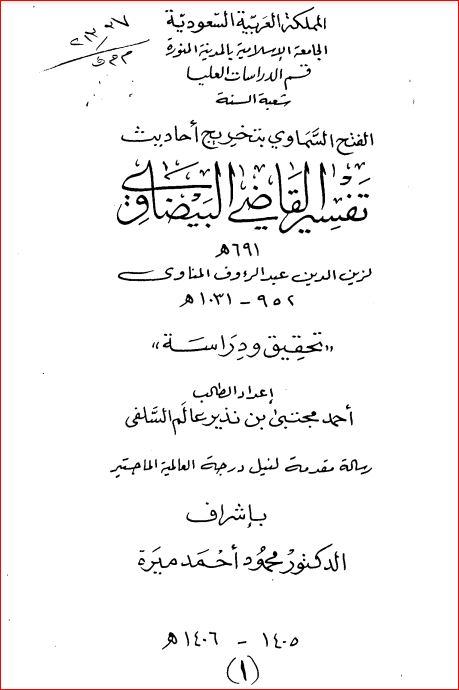 المملكة العربية السعودية
الجامعة الإسلامية بالمدينة المنورة
قسم الدراسات العليا
شعبة السنة
الفتح السماوي بتخريج أحاديث
تَفْسِير القَاضِي البَيْضَاوِي
٦٩١ هـ
لزين الدين عبد الرؤوف المناوى
٩٥٢ - ١٠٣١ هـ
«تحقيق ودراسة»
إعداد الطالب
أحمد مجتبى بن نذير عالم السلفى
رسالة مقدمة لنيل درجة العالمية الماجستير
بإشراف
الدكتور محمود أحمد ميرة
١٤٠٥ - ١٤٠٦ هـ
(١)